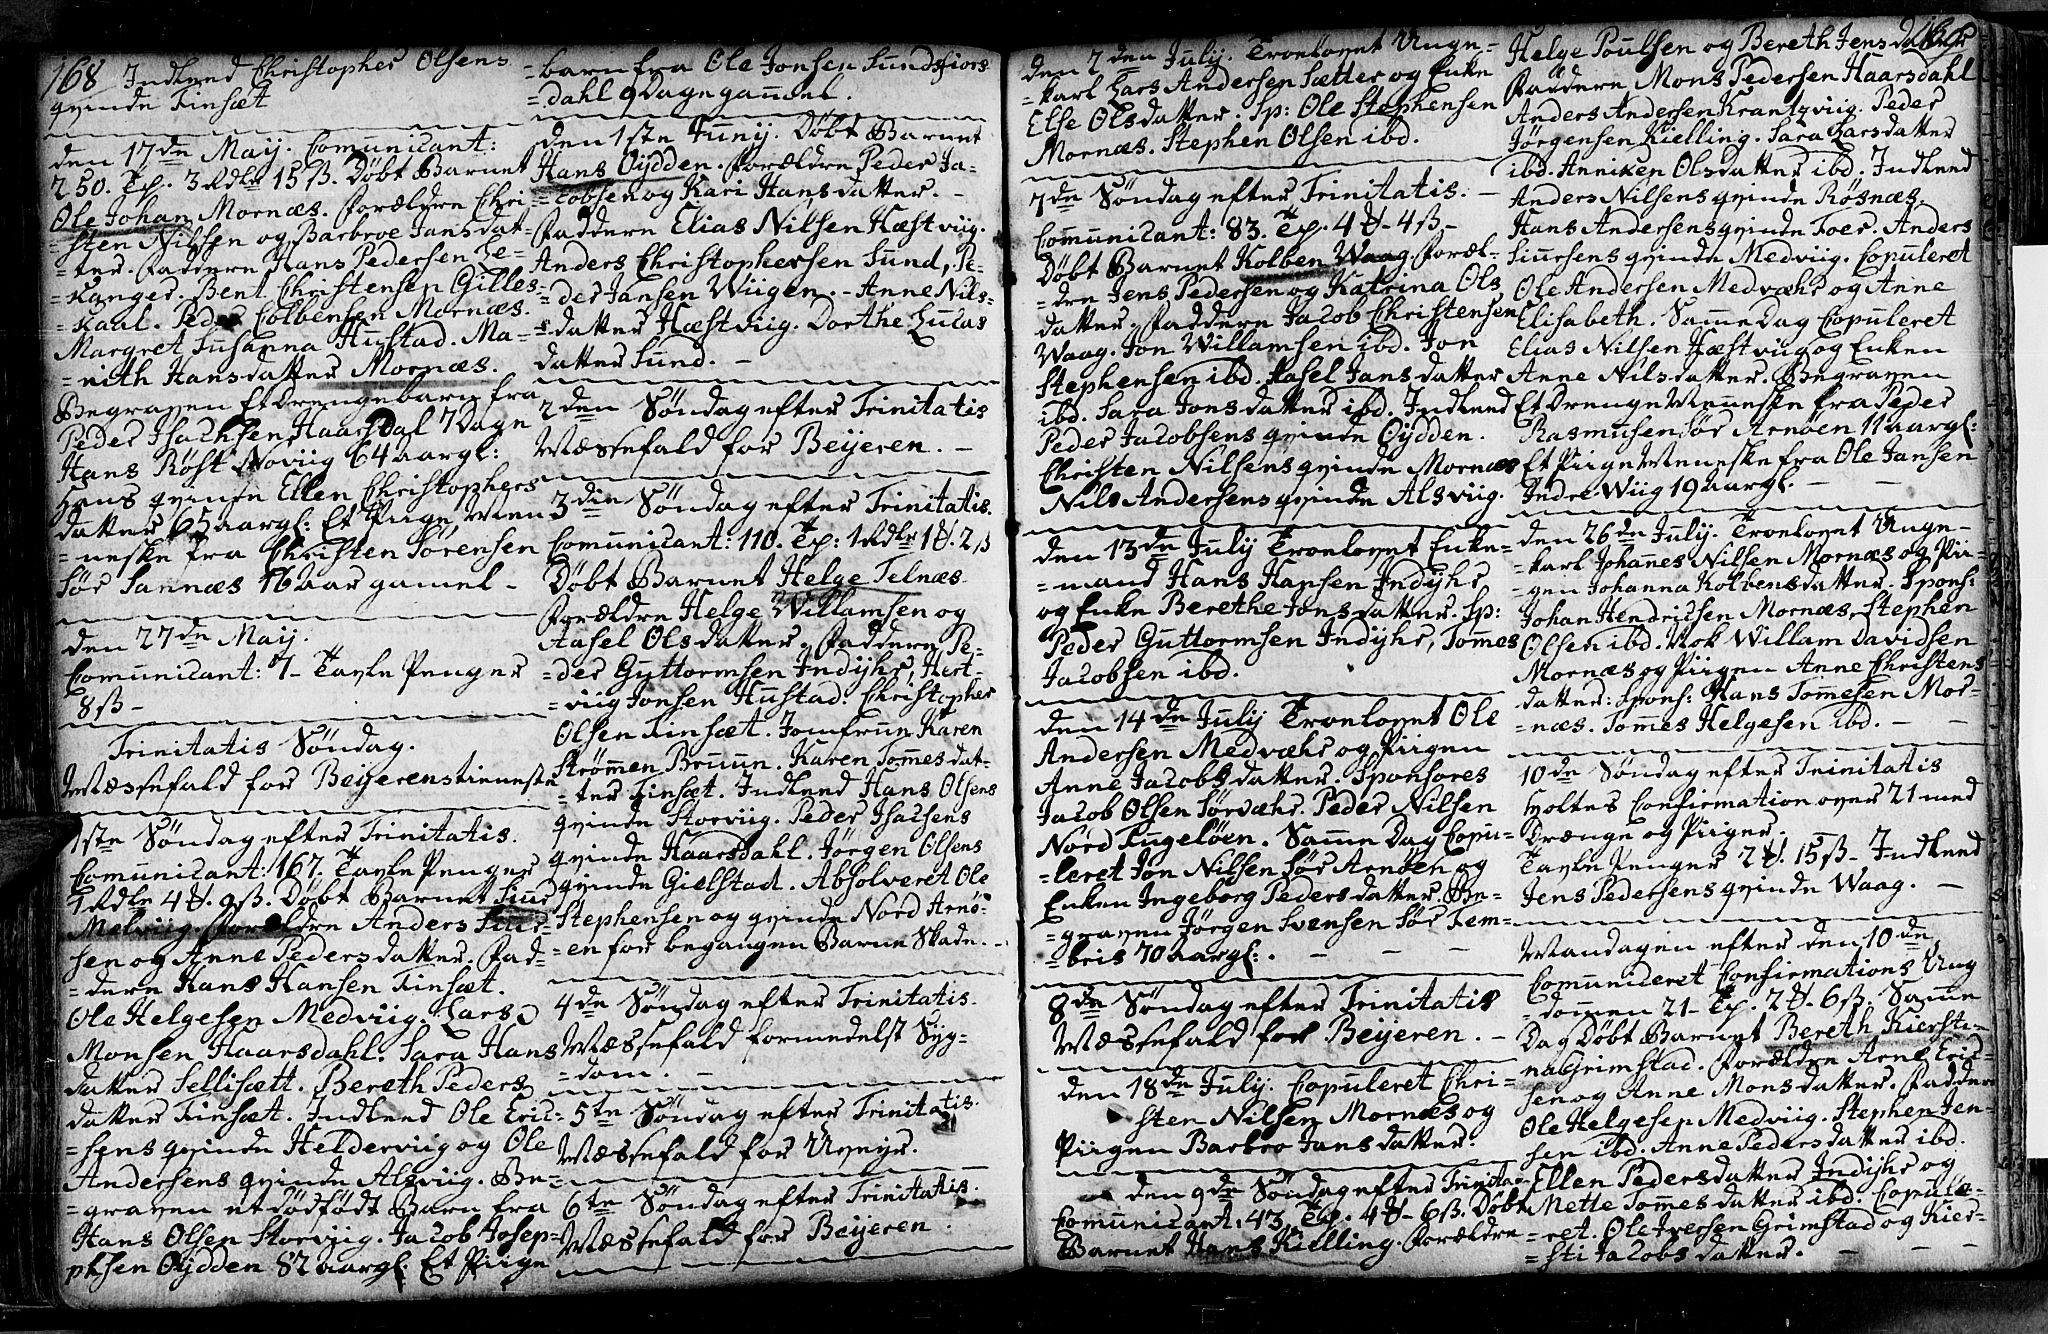 168 Indleed Christopher Olsens
qvinde Finsæt
den 17de Maij. Comunicant:
250. Tp. 3 Rdlr 15 ß. Døbt Barnet
Ole Johan Mornæs. Forældre Chri-
=sten Nilsen og Barbroe Jansdat-
=ter. Faddere Hans Pedersen Le-
=kanger. Bent Christensen Gilles-
=kaal. Peder Colbensen Mornæs.
Margret Susanna Hustad. Ma-
=rith Hansdatter Mornæs.
Begraven Et Drengebarn fra
Peder Isachsen Haarsdal 7 Dage
Hans Røst Noviig 64 aar gl:
Hans qvinde Ellen Christophers
datter 65 aar gl: Et Piige Men
=neske fra Christen Sørensen
Sør Sannæs 16 Aar gamel -
den 27de Maij.
Comunicant: 7 - Tavle Penger
8 ß -
Trinitatis Søndag.
Mæssefald for Beijerens tieneste
1ste Søndag efter Trinitatis.
Comunicant: 167. Tavle Penger
1 Rdlr 4 . 9 ß. Døbt Barnet Siur
Melviig. Forældre Anders Siur-
sen og Anne Pedersdatter. Fad-
=dere Hans Hansen Finsæt.
Ole Helgesen Medviig. Lars
Monsen Haarsdahl. Sara Hans
datter Sellisætt. Bereth Peders
datter Finsæt. Indleed Ole Eric-
=sens qvinde Heldervig og Ole
Andersens qvinde Alsviig. Be-
=graven et dødfødt Barn fra
Hans Olsen Storviig. Jacob Josep-
phsen Oydden 82 aar gl. Et Piige
=barn fra Ole Jonsen Sundsfiors
=dahl 9 Dage gammel.
den 1ste Junij. Døbt Barnet
Hans Oydden. Forældre Peder Ja-
=cobsen og Kari Hansdatter. -
Faddere Elias Nilsen Hæstviig.
Anders Christophersen Sund, Pe-
=der Jansen Wiigen. - Anne Nils-
=datter Hæstviig. Dorthe Lucas
datter Sund. -
2den Søndag efter Trinitatis
Mæssefald for Beijeren. -
3die Søndag efter Trinitatis.
Comunicant: 110. Tp: 1 Rdlr 1 . 2 ß
Døbt Barnet Helge Telnæs.
Forældre Helge Willamsen og
Aasel Olsdatter. Faddere Pe-
=der Guttormsen Indijhr, Hert-
=viig Jonsen Hustad. Christopher
Olsen Finsæt. Jomfruen Karen
Strømen Bruun. Karen Tomesdat-
=ter Finsæt. Indleed Hans Olsens
qvinde Storviig. Peder Isacsens
qvinde Haarsdahl. Jørgen Olsens
qvinde Gielstad. Absolveret Ole
Stephensen og qvinde Nord Arnø-
=en for begangen Barne Skade. -
4de Søndag efter Trinitatis.
Mæssefald formedelst Syg-
=dom. -
5te Søndag efter Trinitatis.
Mæssefald for Uvejr.
6te Søndag efter Trinitatis.
Mæssefald for Beijeren.
den 2den Julij. Trolovet Unge-
=karl Lars Andersen Sætter og Enke
Else Olsdatter. Sp: Ole Stephensen
Mornæs. Stephen Olsen ibd.
7de Søndag efter Trinitatis. -
Comunicant: 83. Tp. 4 - 4 ß -
Døbt Barnet Kolben Waag. Foræl-
=dre Jens Pedersen og Katrina Ols
datter. Faddere Jacob Christensen
Waag. Jon Willamsen ibd. Jon
Stephensen ibd. Aasel Jansdatter
ibd. Sara Jonsdatter ibd. Indleed
Peder Jacobsens qvinde Oydden.
Christen Nilsens qvinde Mornæs
Nils Andersens qvinde Alsviig.
den 13de Julij Trolovet Enke-
=mand Hans Hansen Indijhr,
og Enke Berethe Jonsdatter. Sp:
Peder Guttormsen Indijhr, Tomes
Jacobsen ibd.
den 14de Julij Trolovet Ole
Andersen Medvæhr og Piigen
Anne Jacobsdatter. Sponsores
Jacob Olsen Sørvæhr. Peder Nilsen
Nord Fugeløen. Samme Dag Copu-
=leret Jon Nilsen Sør Arnøen og
Enken Ingeborg Pedersdatter. Be-
=graven Jørgen Svensen Sør Tem-
=bris 70 aar gl: - -
8de Søndag efter Trinitatis
Mæssefald for Beijeren. -
den 18de Julij. Copuleret Chri-
sten Nilsen Mornæs og
Piigen Barbro Jansdatter.
den 9de Søndag efter Trinita-
Comunicant: 43. Tp. 4 - 6 ß. Døbt
Barnet Hans Kielling. Forældre
Helge Poulsen og Bereth Jensdatter
Faddere Mons Pedersen Haarsdahl
Anders Andersen Krantzviig. Peder
Jørgensen Kielling. Sara Larsdatter
ibd. Anniken Olsdatter ibd. Indleed
Anders Nilsens qvinde Røsnæs.
Hans Andersens qvinde Foer. Anders
Siursens qvinde Medviig. Copuleret
Ole Andersen Medvæhr og Anne
Elisabeth. Samme Dag Copuleret
Elias Nilsen Hæstviig og Enken
Anne Nilsdatter. Begraven
Et Drenge Menneske fra Peder
Rasmusen Sør Arnøen 11 aar gl:
Et Piige Meneske fra Ole Jansen
Indre Wiig 19 aar gl. - -
den 26de Julij. Trolovet Unge-
=karl Johannes Nilsen Mornæs og Pii-
=gen Johanna Kolbensdatter. Spons:
Johan Hendricsen Mornæs, Stephen
Olsen ibd. Nok Willam Davidsen
Mornæs og Piigen Anne Christens
datter: Spons: Hans Tomesen Mor-
=næs. Tomes Helgesen ibd. - -
10de Søndag efter Trinitatis
Holtes Confirmation over 21 med
Drænge og Piiger.
Tavle Penger 2 . 15 ß - Indleed
Jens Pedersens qvinde Waag. -
Mandagen efter den 10de
Comuniceret Confirmations Ung
=dommen 21 - Tp. 2 . 6 ß. Samme
Dag Døbt Barnet Bereth Kiersti-
na Grimstad. Forældre Arne Eric-
sen og Anne Monsdatter. Faddere
Ole Helgesen Medviig. Stephen Jen-
sen ibd. Anne Pedersdatter ibd.
Ellen Pedersdatter Indijhr og
Mette Tomesdatter ibd. Copule-
=ret. Ole Iversen Grimstad og Kier-
=sti Jacobsdatter. - - -